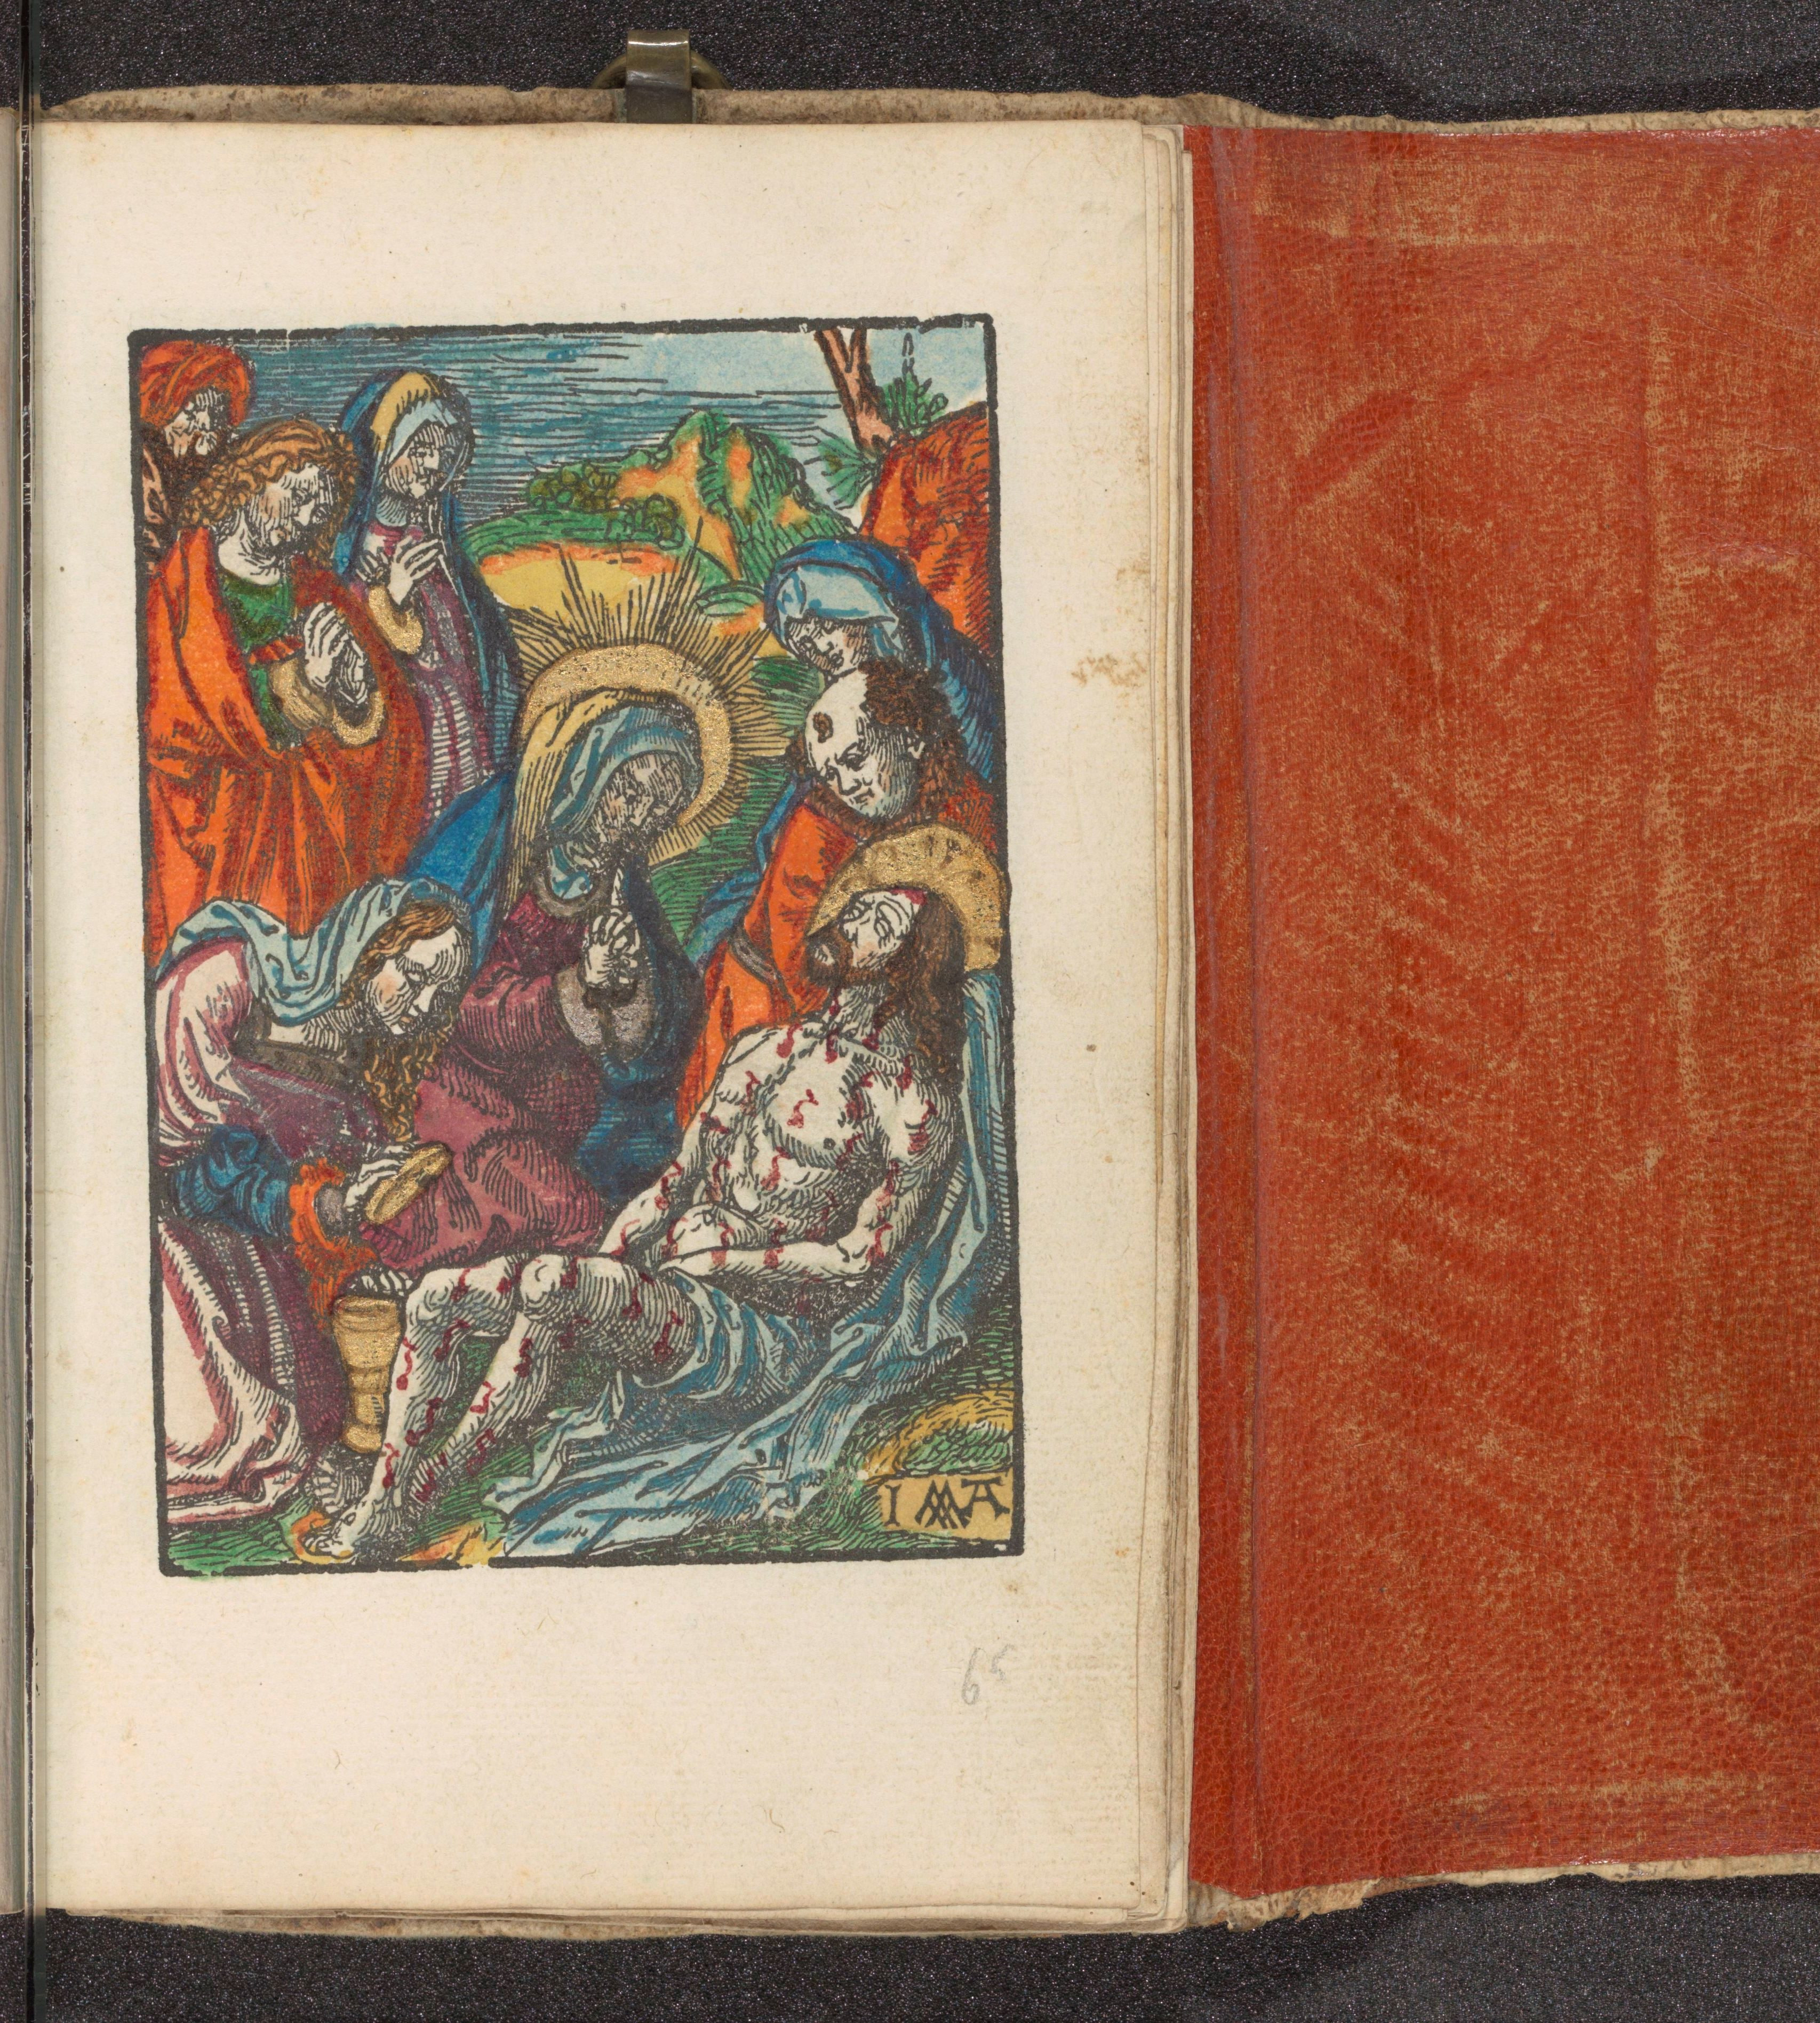 I AMA
65